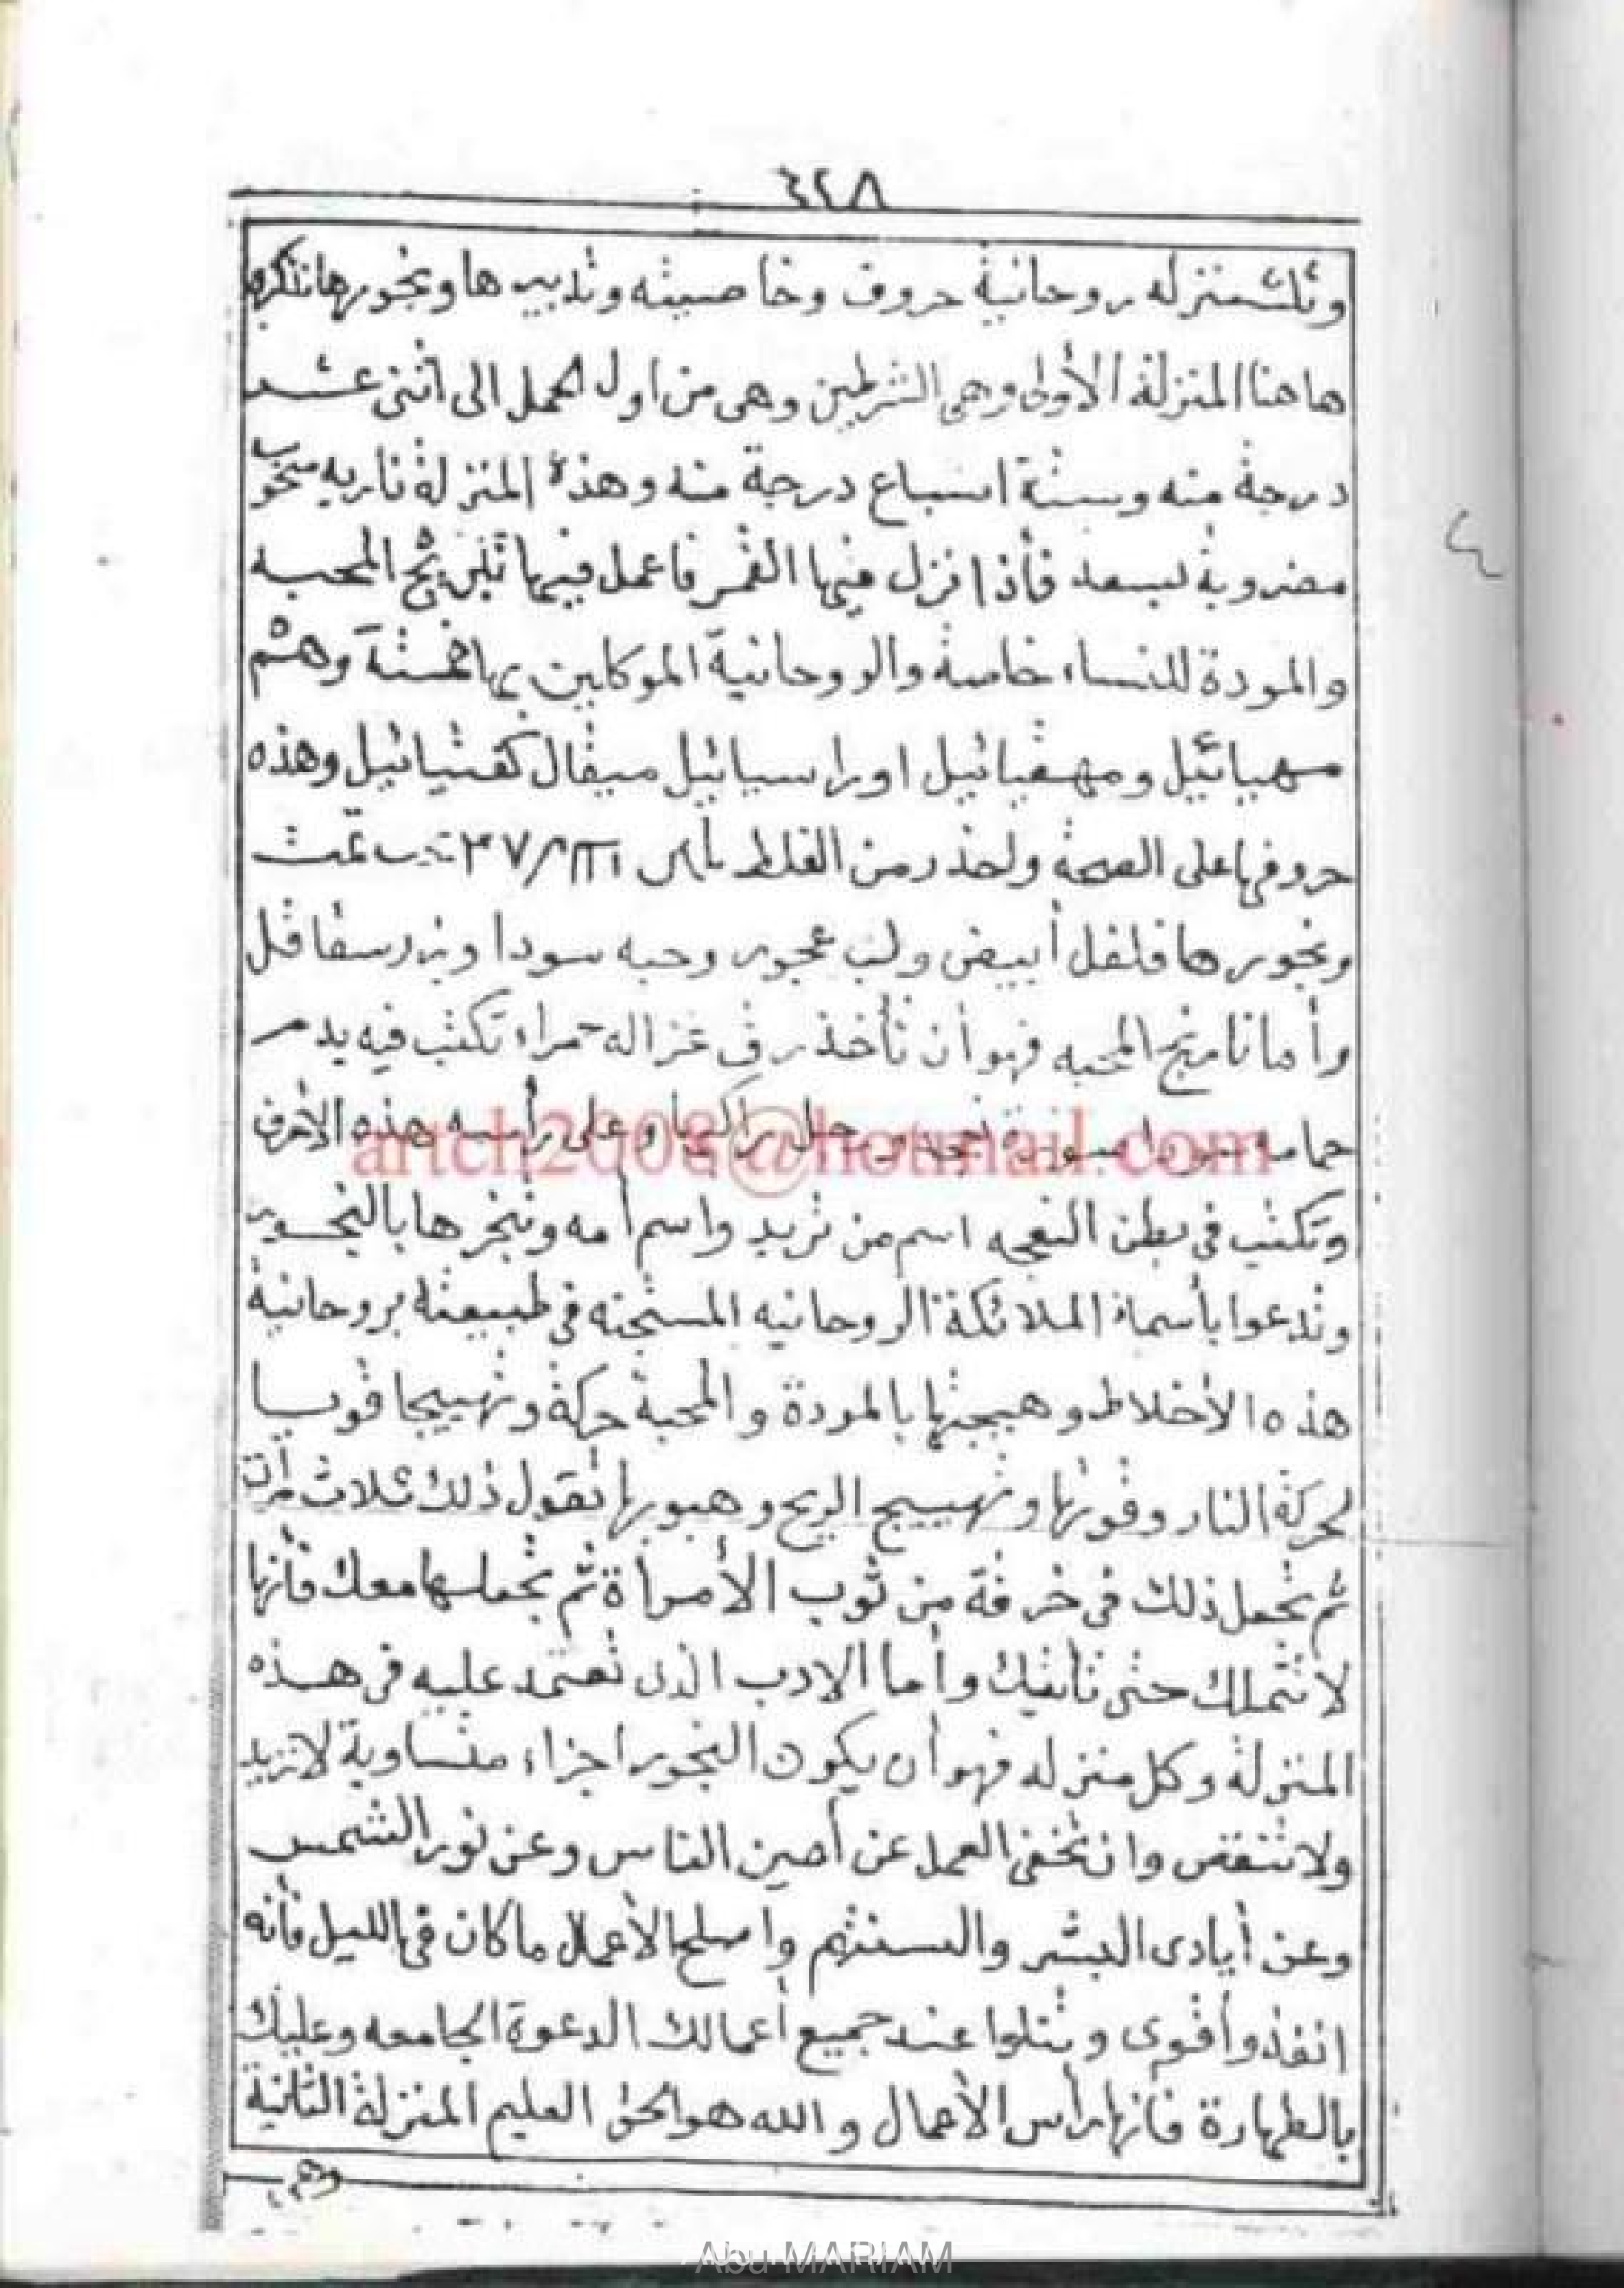 ٦٢٨
ولكل منزله روحانية حروف وخاصيته وتدبيرها وبخورها نذكرها
هاهنا المنزلة الأولى وهي الشرطين وهي من اول الحمل الى اثنى عشر
درجة منه وستة اسباع درجة منه وهذه المنزلة ناريه
فأذا نزل فيها القمر فاعمل فيها المحبه
والمودة للنساء خاصة والروحانية الموكلين بها خمسة وهم
مهيائيل اوراسيائيل ميقال كفتيائيل وهذه
حروفها على الصحة ولحذر من الغلط تمت
وبخورها فلفل أبيض ولب عجور وحبه سودا وبزر
وأما نارنج المحبه فهو أن تأخذ رق غزاله حمراء تكتب فيه بدم
حمامه سودا صورة رجل راكبها وعلى رأسه هذه الأحرف
artch2008@hotmail.com
وتكتب فى بطن النعجه اسم من تريد واسم أمه وتبخرها بالبخور
وتدعوا بأسماء الملائكة الروحانيه المستجنه فى طبيعة بروحانية
هذه الأخلاط وهيجتها بالمودة والمحبة حركة وتهييجا قويا
لحركة النار وقوتها وتهييج الريح وهبوبها تقول ذلك ثلاث مرات
ثم تجعل ذلك فى خرقة من ثوب الأمرأة ثم تجعلها معك فأنها
لا تتملك حتى تأتيك وأما الادب الذى تعتمد عليه فى هذه
المنزلة وكل منزله فهو أن يكون البخور اجزاء متساوية لا تزيد
ولا تنقص وان تخفى العمل عن أعين الناس وعن نور الشمس
وعن أيادى البشر والسنتهم واصلح الأعمال ما كان فى الليل فأنه
انفذ وأقوى وتتلوا عند جميع أعمالك الدعوة الجامعه وعليك
بالطهارة فأنها رأس الأعمال والله هو الحق العليم المنزلة الثانية
وهى
Abu MARIAM